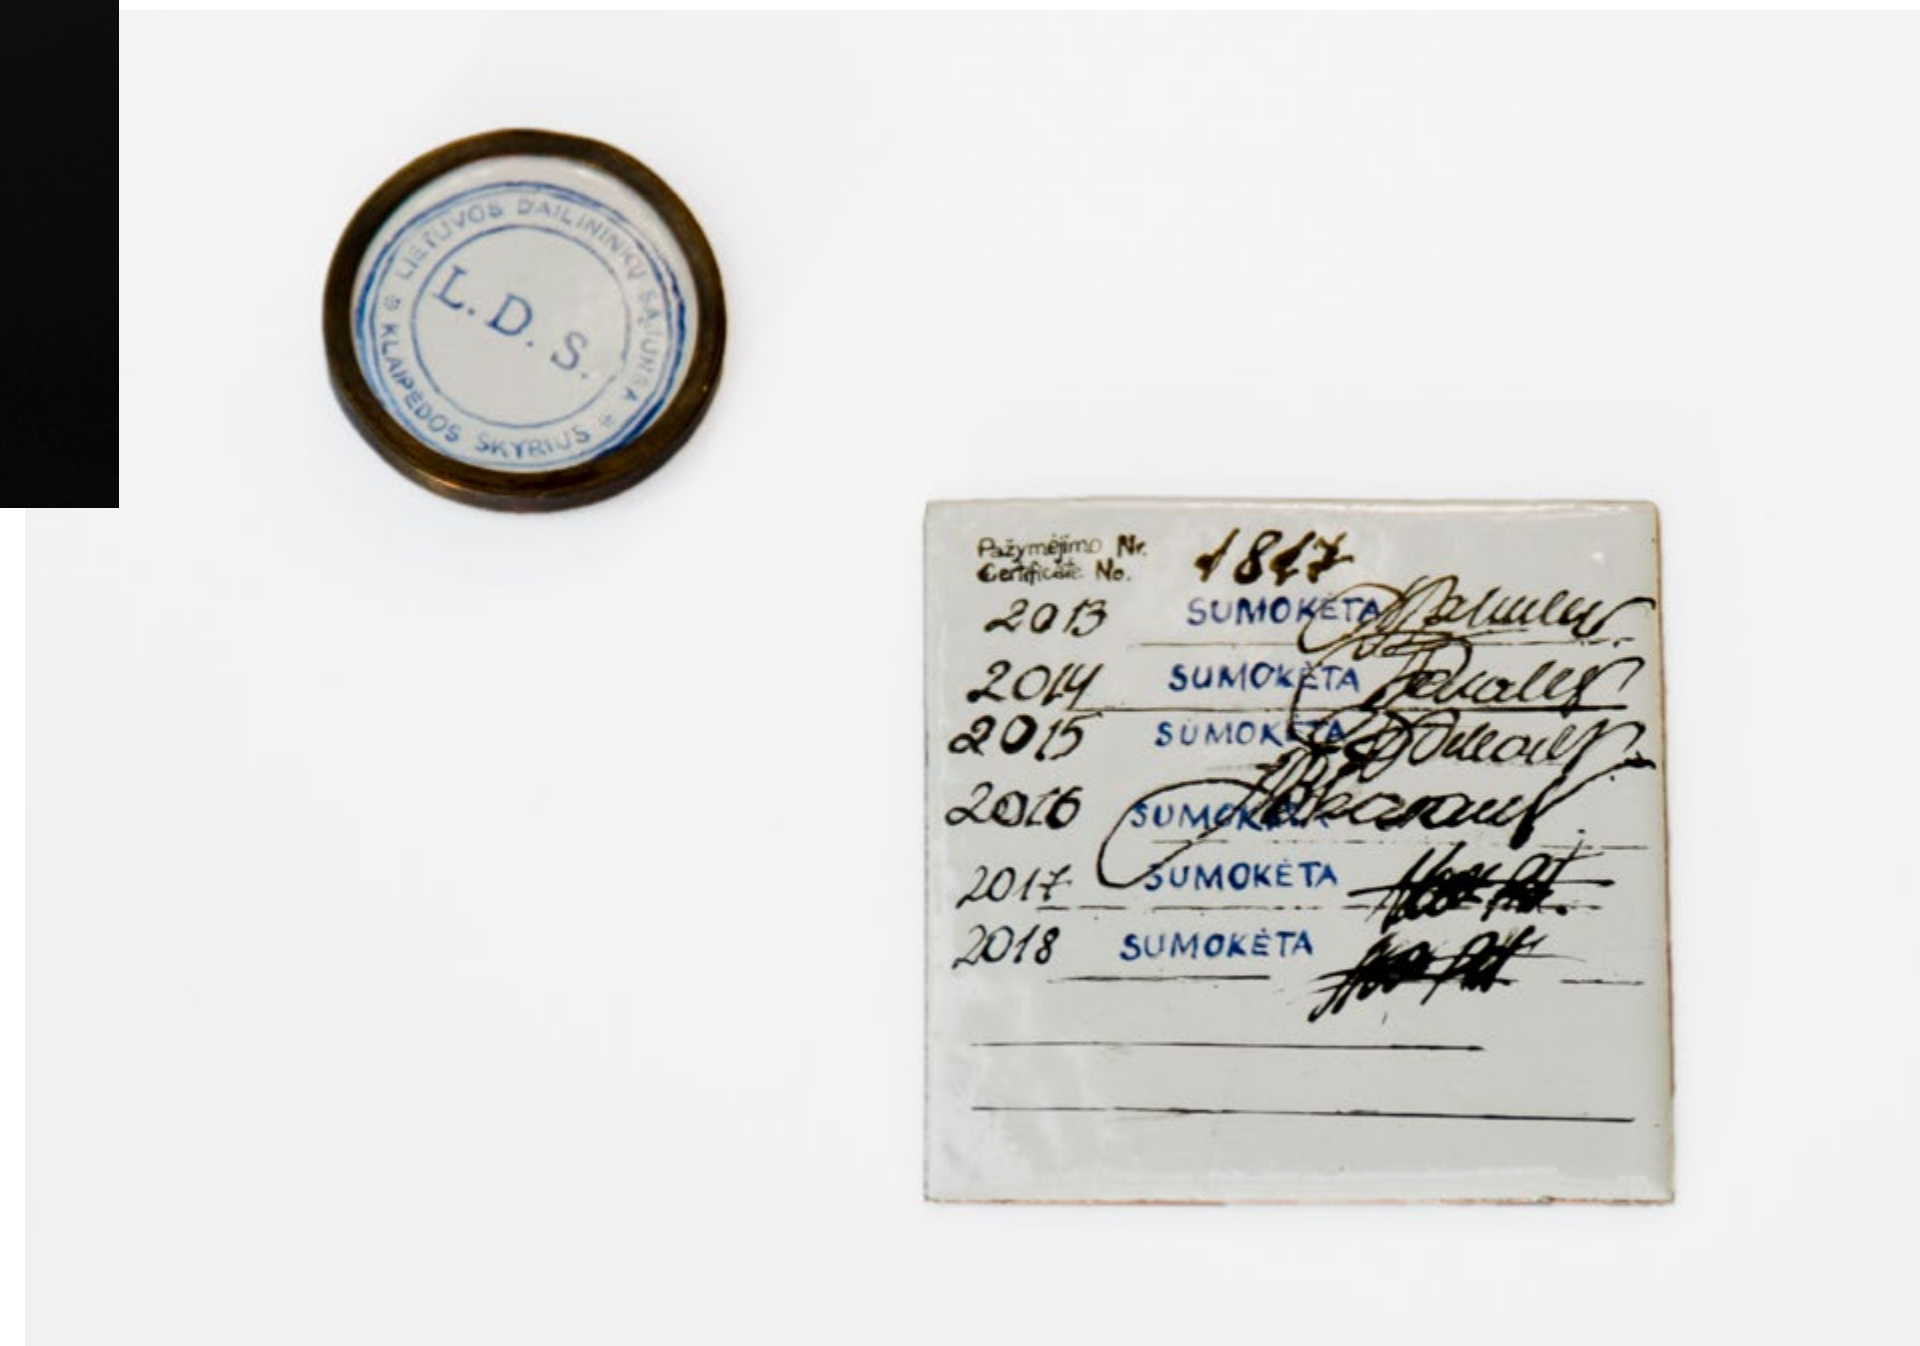 LIETUVOS DAILININKŲ SĄJUNGA
L. D. S.
* KLAIPĖDOS SKYRIUS *
Pažymėjimo Nr. 1817
Certificate No.
2013 SUMOKĖTA
2014 SUMOKĖTA
2015 SUMOKĖTA
2016 SUMOKĖTA
2017 SUMOKĖTA
2018 SUMOKĖTA